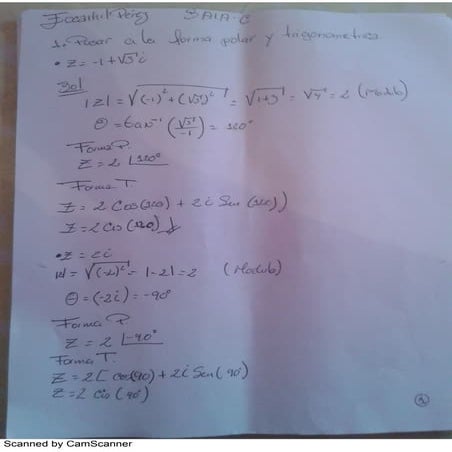 SAIA-C
1. Pasar a la forma polar y trigonometrica
• Z = -1+√3 i
Sol
|Z| = √(-1)² + (√3)² = √1+3 = √4 = 2 (Modulo)
θ = tan⁻¹ (√3/-1) = 120°
Forma P.
Z = 2 ∠120°
Forma T.
Z = 2 Cos(120) + 2i Sen (120)
Z = 2 Cis (120)
• Z = 2i
|Z| = √(-2)² = |-2| = 2 (Modulo)
θ = (-2i) = -90°
Forma P.
Z = 2 ∠-90°
Forma T.
Z = 2[ cos(90) + 2i Sen (90)
Z = 2 cis (90°)
Scanned by CamScanner